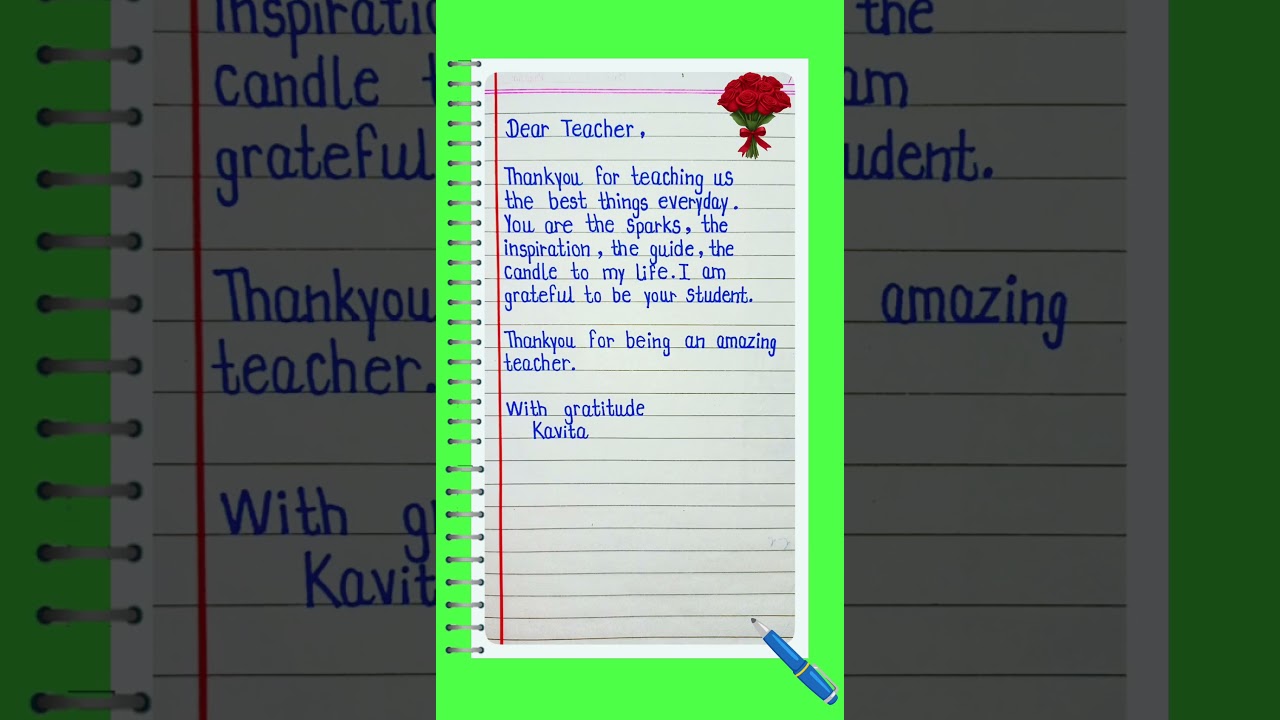 Dear Teacher,
Thankyou for teaching us
the best things everyday.
You are the sparks, the
inspiration, the guide, the
candle to my life. I am
grateful to be your student.
Thankyou for being an amazing
teacher.
With gratitude
Kavita